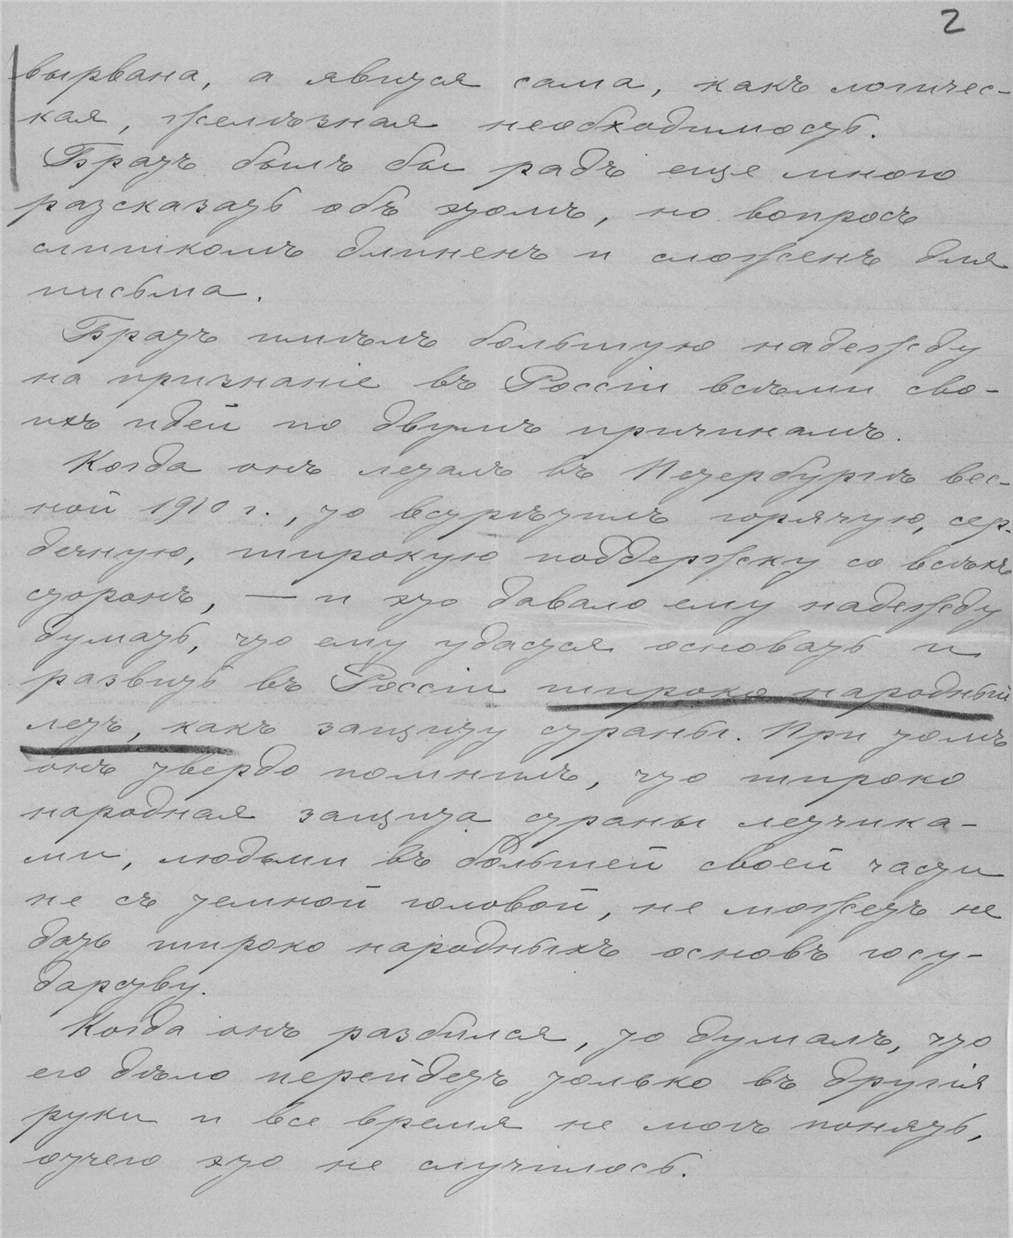 2
вырвана, а явится сама, какъ логичес-
кая, желѣзная необходимость.
Братъ былъ бы радъ еще много
разсказать объ этомъ, но вопросъ
слишкомъ длиненъ и сложенъ для
письма.
Братъ имѣлъ большую надежду
на признаніе въ Россіи всѣми сво-
ихъ идей по двумъ причинамъ.
Когда онъ леталъ въ Петербургѣ вес-
ной 1910 г., то встрѣтилъ горячую, сер-
дечную, широкую поддержку со всѣхъ
сторонъ, — и это давало ему надежду
думать, что ему удастся основать и
развить въ Россіи широко народный
летъ, какъ защиту страны. При томъ
онъ твердо помнилъ, что широко
народная защита страны летчика-
ми, людьми въ большей своей части
не съ темной головой, не можетъ не
дать широко народныхъ основъ госу-
дарству.
Когда онъ разбился, то думалъ, что
его дѣло перейдетъ только въ другія
руки и все время не могъ понять,
отчего это не случилось.